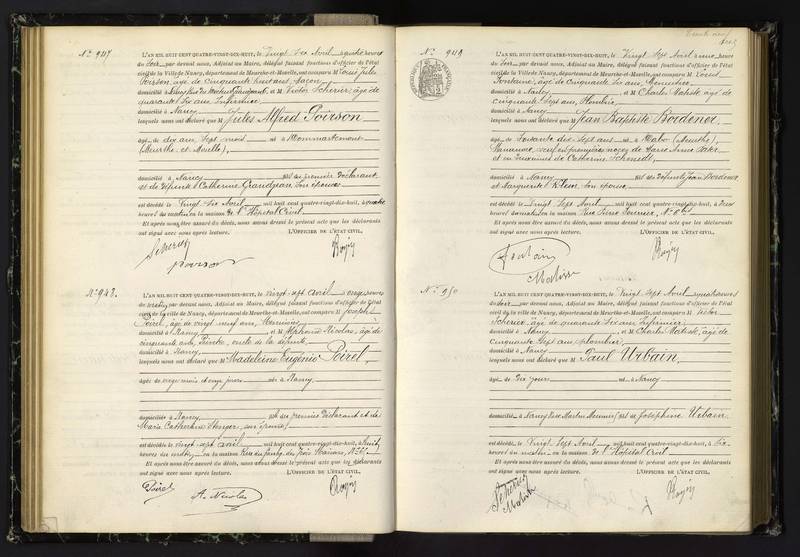 N° 947
L'AN MIL HUIT CENT QUATRE-VINGT-DIX-HUIT, le Vingt Six Avril à quatre heures
du Soir, par devant nous, Adjoint au Maire, délégué faisant fonctions d'officier de l'état
civil de la Ville de Nancy, département de Meurthe-et-Moselle, ont comparu M Louis Jules
Poirson, âgé de Cinquante huit ans, Maçon
domicilié à Nancy Rue et M Victor Scherier, âgé de
quarante Six ans, Infirmier
domicilié à Nancy
lesquels nous ont déclaré que M Jules Alfred Poirson
âgé de dix ans, Sept mois né à Mommartemont
(Meurthe et Moselle),
domicilié à Nancy fils du premier Déclarant
et de Défunte Catherine Grandjean Son épouse
est décédé le Vingt Six Avril mil huit cent quatre-vingt-dix-huit, à quatre
heures du matin en la maison de l'Hôpital Civil
Et après nous être assuré du décès, nous avons dressé le présent acte que les déclarants
ont signé avec nous après lecture. L'OFFICIER DE L'ÉTAT CIVIL,
Scherier
Poirson
N° 948.
L'AN MIL HUIT CENT QUATRE-VINGT-DIX-HUIT, le vingt-sept avril à onze heures
du matin, par devant nous, Adjoint au Maire, délégué faisant fonctions d'officier de l'état
civil de la ville de Nancy, département de Meurthe-et-Moselle, ont comparu M Joseph
Poirel, âgé de vingt neuf ans, Menuisier
domicilié à Nancy et M Alphonse Nicolas, âgé de
cinquante ans, Peintre, oncle de la défunte
domicilié à Nancy,
lesquels nous ont déclaré que M Madeleine Eugénie Poirel,
âgée de onze mois et onze jours née à Nancy
domiciliée à Nancy, fille du premier Déclarant et de
Marie Catherine Stenger, son épouse,
est décédée le vingt-sept avril mil huit cent quatre-vingt-dix-huit, à huit
heures du matin en la maison Rue du faubg. des Trois Maisons, N°
Et après nous être assuré du décès, nous avons dressé le présent acte que les déclarants
ont signé avec nous après lecture. L'OFFICIER DE L'ÉTAT CIVIL,
Poirel
A. Nicolas
N° 949
L'AN MIL HUIT CENT QUATRE-VINGT-DIX-HUIT, le Vingt Sept Avril à une heure
du Soir, par devant nous, Adjoint au Maire, délégué faisant fonctions d'officier de l'état
civil de la Ville de Nancy, département de Meurthe-et-Moselle, ont comparu M Louis
Fontaine, âgé de Cinquante Six ans,
domicilié à Nancy et M Charles Matiste, âgé de
cinquante Sept ans, Plombier
domicilié à Nancy
lesquels nous ont déclaré que M Jean Baptiste Bordener
âgé de Soixante dix Sept ans né à (Meurthe),
veuf en premières noces de Marie Anne
et en deuxièmes de Catherine Schmidt,
domicilié à Nancy fils des Défunts Jean Bordener
et Marguerite Klein, Son épouse,
est décédé le Vingt Sept Avril mil huit cent quatre-vingt-dix-huit, à Deux
heures du matin en la maison Rue Pierre Fourrier, N°
Et après nous être assuré du décès, nous avons dressé le présent acte que les déclarants
ont signé avec nous après lecture. L'OFFICIER DE L'ÉTAT CIVIL,
Fontain
N° 950
L'AN MIL HUIT CENT QUATRE-VINGT-DIX-HUIT, le Vingt Sept Avril à quatre heures
du Soir, par devant nous, Adjoint au Maire, délégué faisant fonctions d'officier de l'état
civil de la ville de Nancy, département de Meurthe-et-Moselle, ont comparu M Victor
Scherier, âgé de quarante Six ans, Infirmier
domicilié à Nancy et M Charles Matiste, âgé de
Cinquante Sept ans, plombier
domicilié à Nancy
lesquels nous ont déclaré que M Paul Urbain,
âgé de Dix jours né à Nancy
domicilié à Nancy Rue fils de Joséphine Urbain
est décédé le Vingt Sept Avril mil huit cent quatre-vingt-dix-huit, à Six
heures du matin en la maison de l'Hôpital Civil
Et après nous être assuré du décès, nous avons dressé le présent acte que les déclarants
ont signé avec nous après lecture. L'OFFICIER DE L'ÉTAT CIVIL,
Scherier